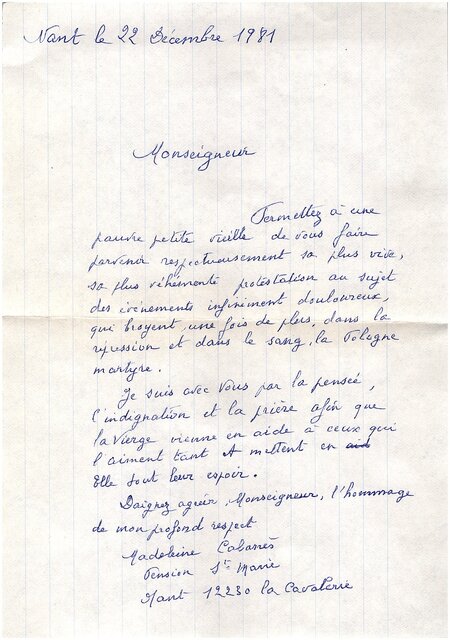 Nant le 22 Décembre 1981
Monseigneur
Permettez à une
pauvre petite vieille de vous faire
parvenir respectueusement sa plus vive,
sa plus véhémente protestation au sujet
des événements infiniment douloureux,
qui broyent, une fois de plus, dans la
répression et dans le sang, la Pologne
martyre.
Je suis avec vous par la pensée,
l'indignation et la prière afin que
la Vierge vienne en aide à ceux qui
l'aiment tant et mettent en aid
Elle tout leur espoir.
Daignez agréer, Monseigneur, l'hommage
de mon profond respect
Madeleine Cabanès
Pension Ste Marie
Nant 12230 la Cavalerie